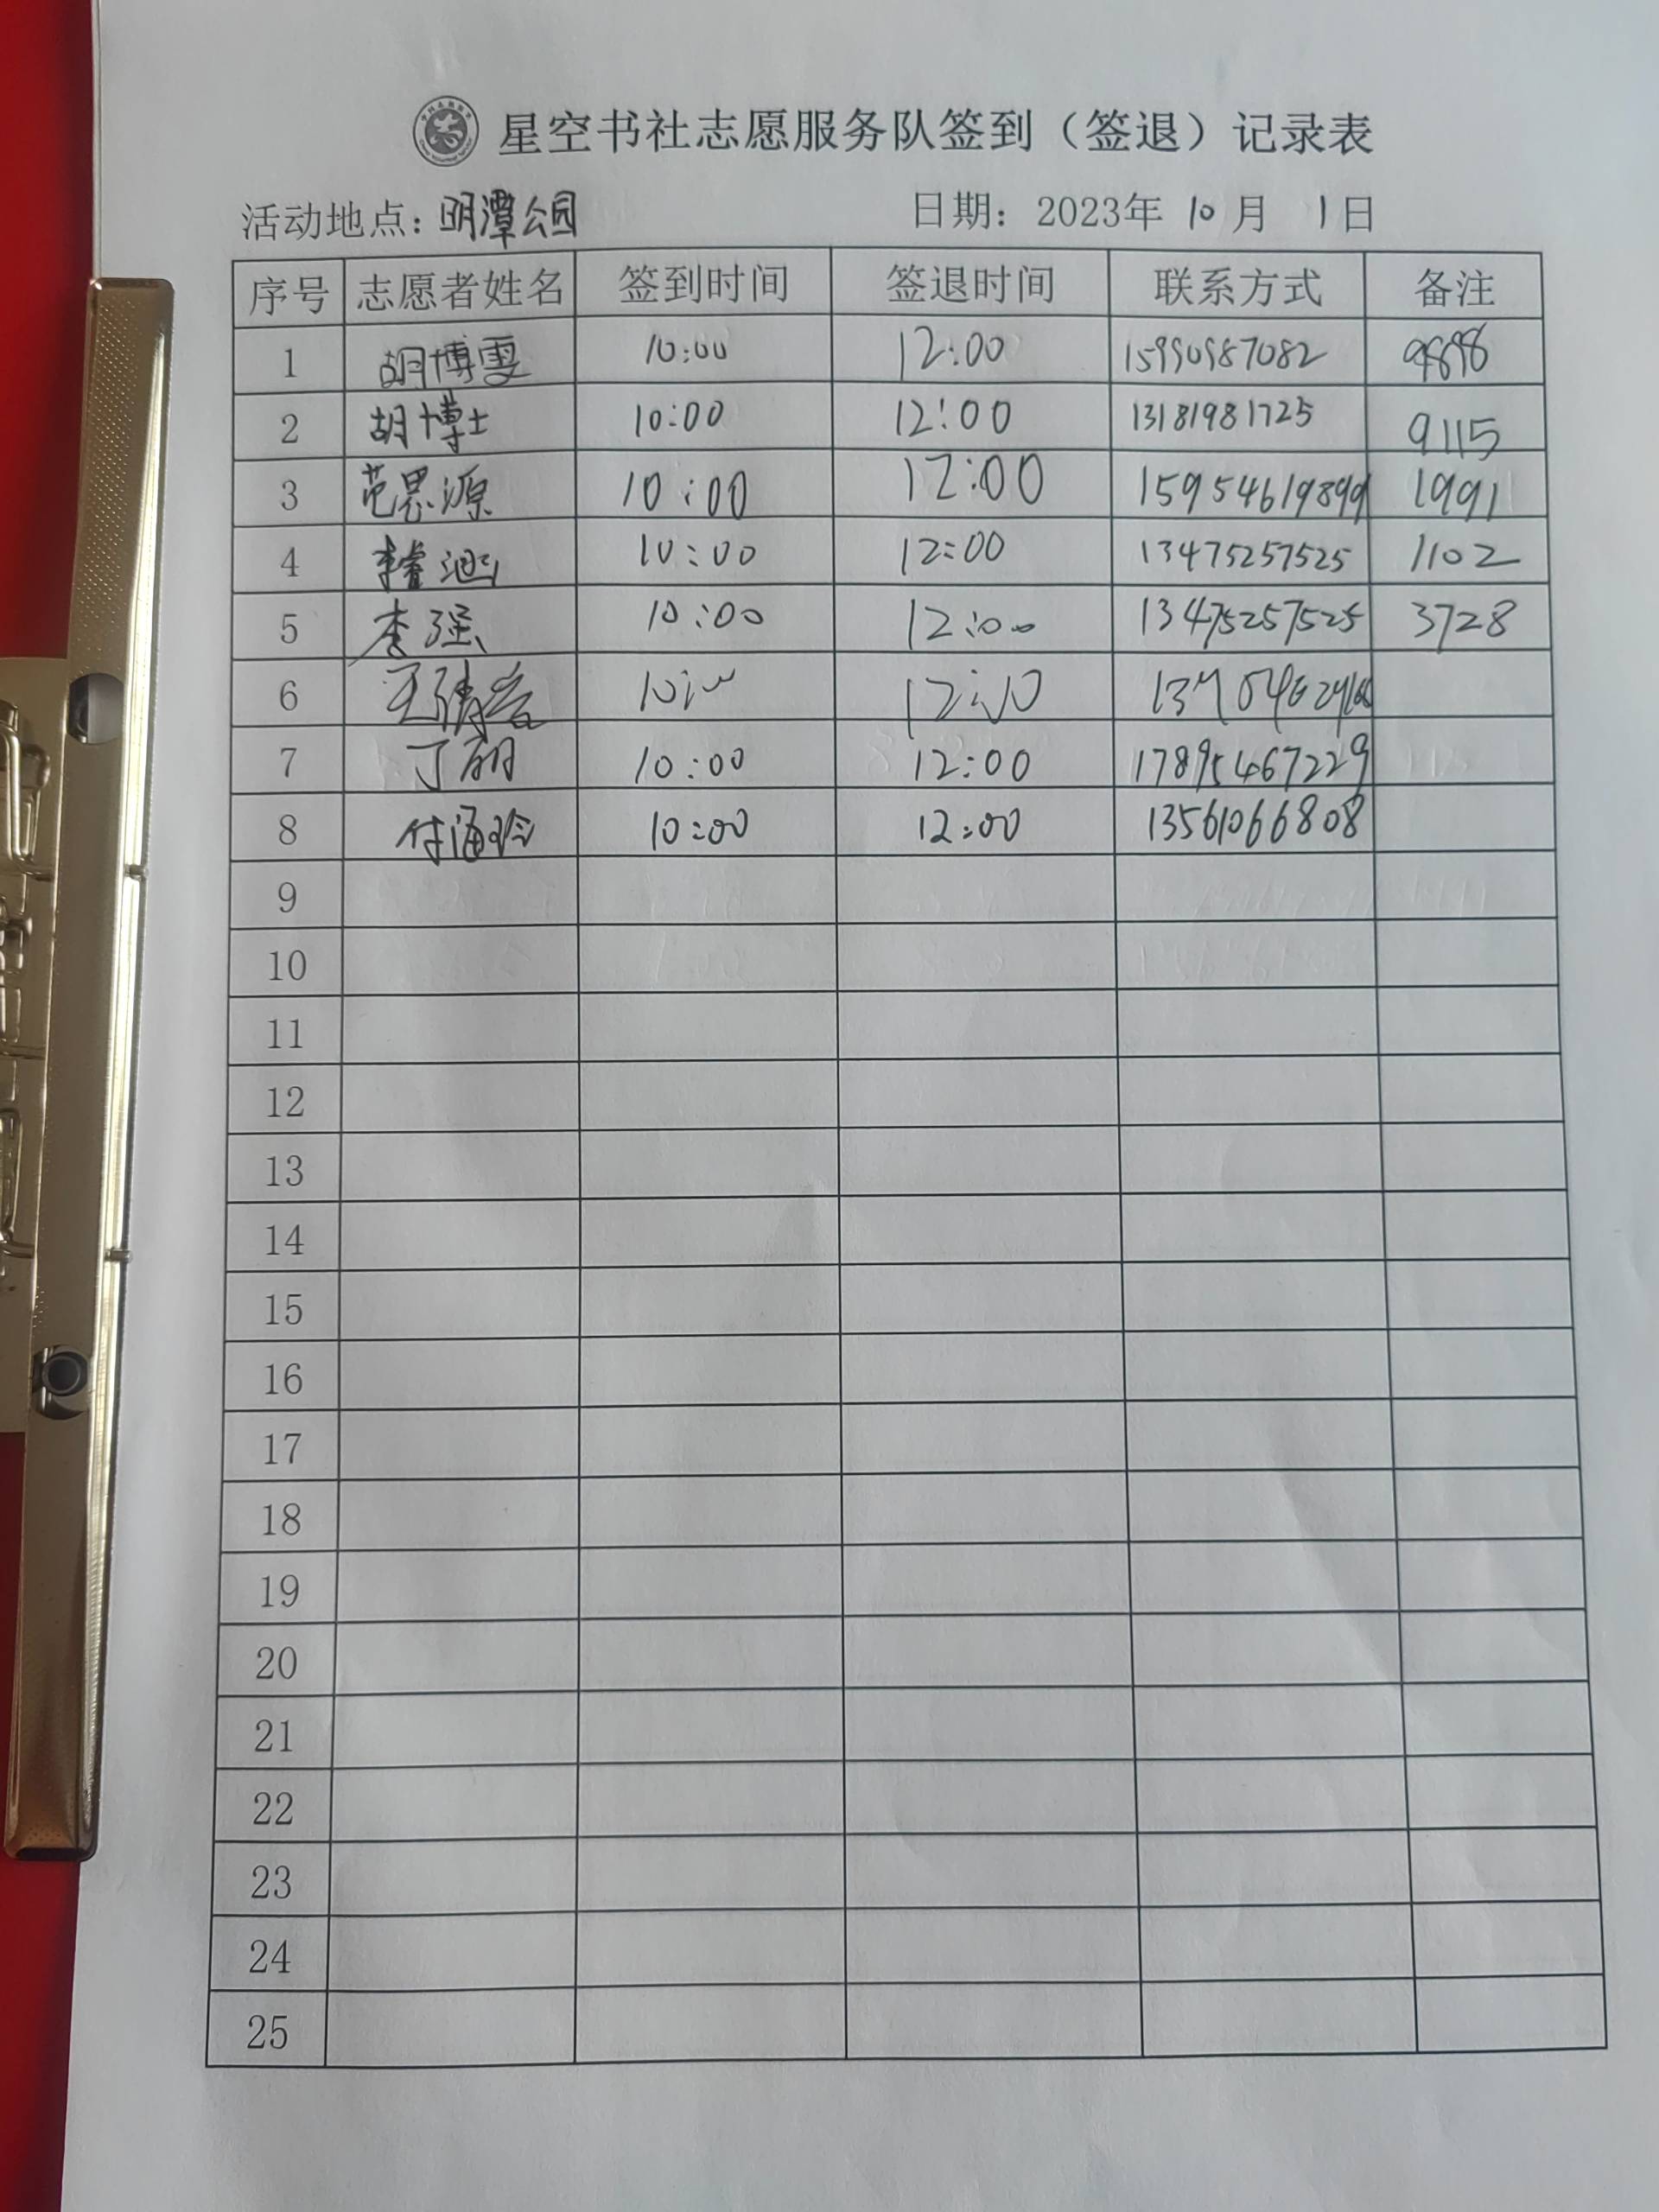 星空书社志愿服务队签到（签退）记录表
活动地点：明潭公园 日期：2023年 10月 1日
序号 志愿者姓名 签到时间 签退时间 联系方式 备注
1 胡博雯 10:00 12:00 15990987082
2 胡博士 10:00 12:00 13181981725 9115
3 范思源 10:00 12:00 15954619899 1991
4 10:00 12:00 13475257525 1102
5 李强 10:00 12:00 13475257525 3728
6 10:00
7 丁朋 10:00 12:00 17895467229
8 付海玲 10:00 12:00 13561066808
9
10
11
12
13
14
15
16
17
18
19
20
21
22
23
24
25